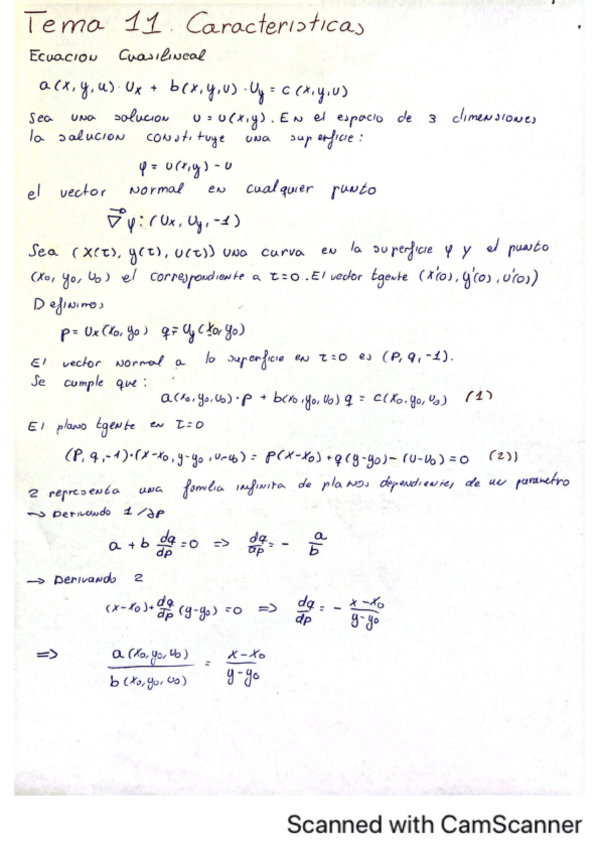 Tema 11. Caracteristicas
Ecuacion Cuasilineal
a(x,y,u)·Ux + b(x,y,u)·Uy = c(x,y,u)
Sea una solucion u=u(x,y). En el espacio de 3 dimensiones
la solucion constituye una superficie:
φ = u(x,y) - u
el vector normal en cualquier punto
∇φ: (Ux, Uy, -1)
Sea (x(τ), y(τ), u(τ)) una curva en la superficie φ y el punto
(x0, y0, u0) el correspondiente a τ=0. El vector tgente (x'(0), y'(0), u'(0))
Definimos
p = Ux(x0,y0) q = Uy(x0,y0)
El vector normal a la superficie en τ=0 es (P, q, -1).
Se cumple que:
a(x0,y0,u0)·p + b(x0,y0,u0)q = c(x0,y0,u0) (1)
El plano tgente en τ=0
(P, q, -1)·(x-x0, y-y0, u-u0) = p(x-x0)+q(y-y0)-(u-u0)=0 (2))
2 representa una familia infinita de planos dependientes de un parametro
→ Derivando 1/∂P
a + b dq/dp = 0 => dq/dp = - a/b
→ Derivando 2
(x-x0)+dq/dp (y-y0) = 0 => dq/dp = - x-x0/y-y0
=> a(x0,y0,u0)/b(x0,y0,u0) = x-x0/y-y0
Scanned with CamScanner